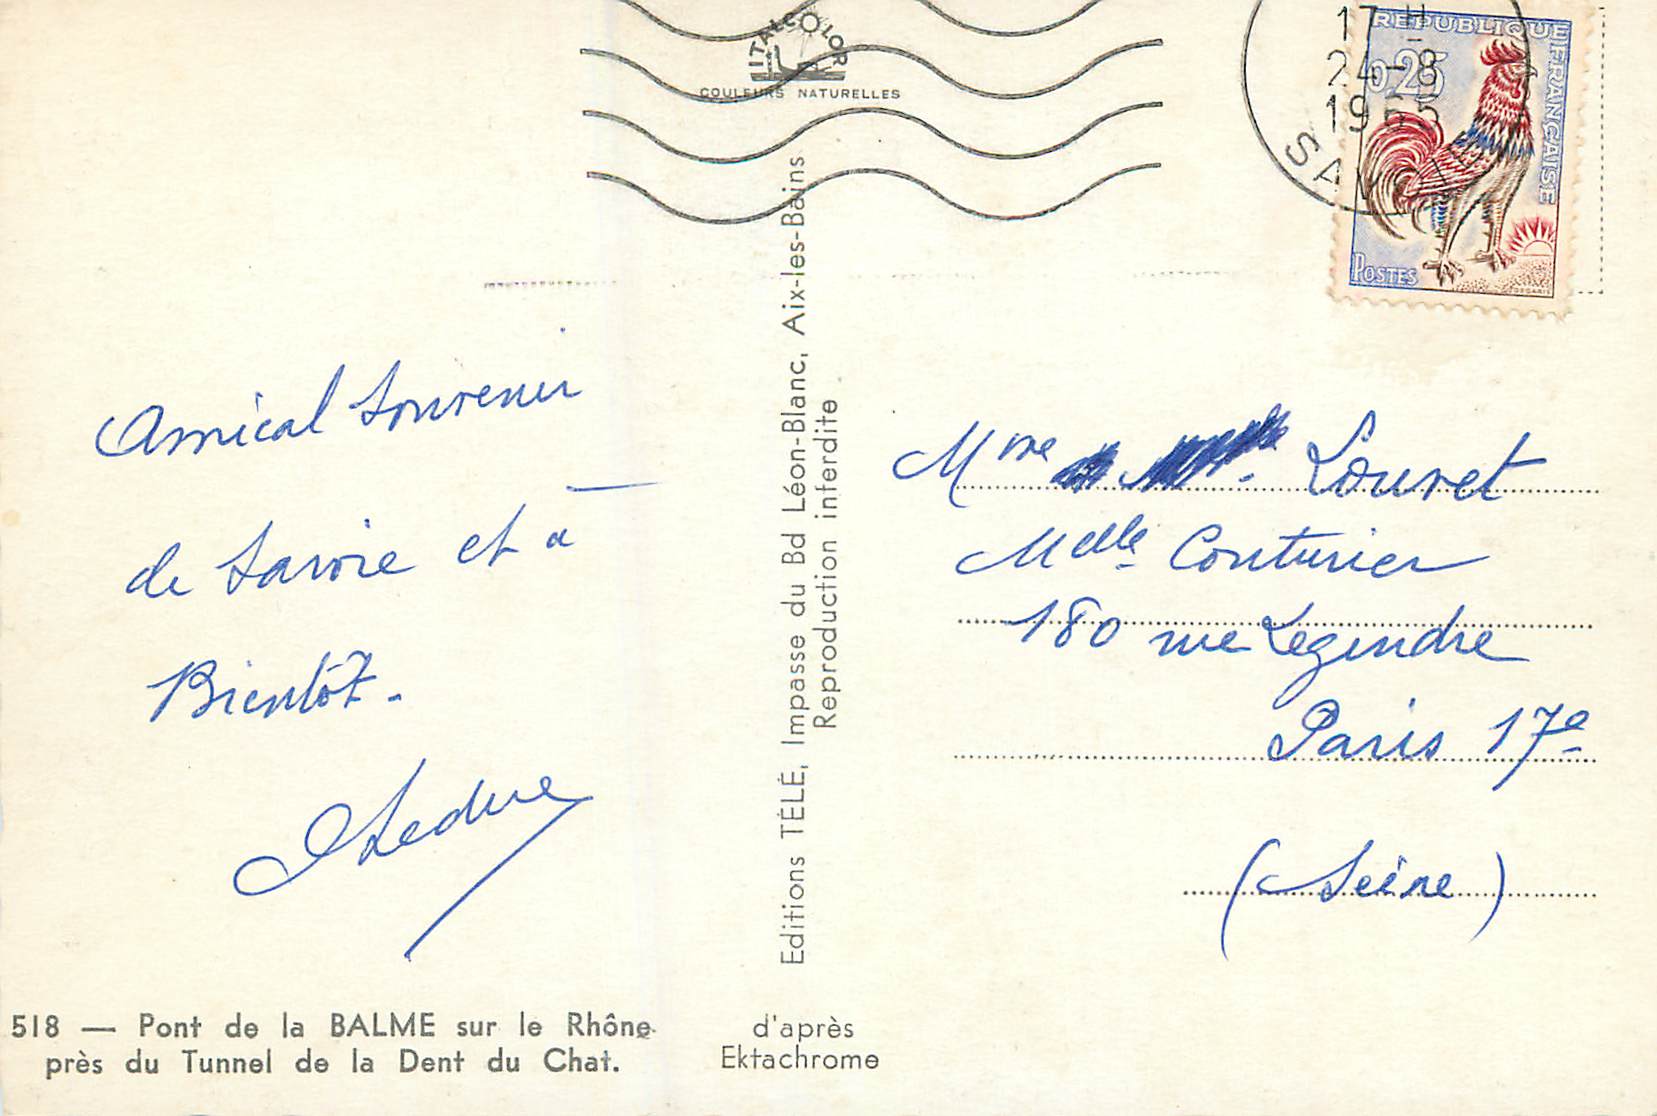 ITALCOLOR
COULEURS NATURELLES
17 H
24-8
1965
SAV
REPUBLIQUE FRANÇAISE
0,25
POSTES
Amical Souvenir
de Savoie et à
Bientôt.
Leduc
Mme Louvet
Melle Couturier
180 rue Legendre
Paris 17e
(Seine)
Editions TÉLÉ, Impasse du Bd Léon-Blanc, Aix-les-Bains
Reproduction interdite.
518 — Pont de la BALME sur le Rhône
près du Tunnel de la Dent du Chat.
d'après
Ektachrome